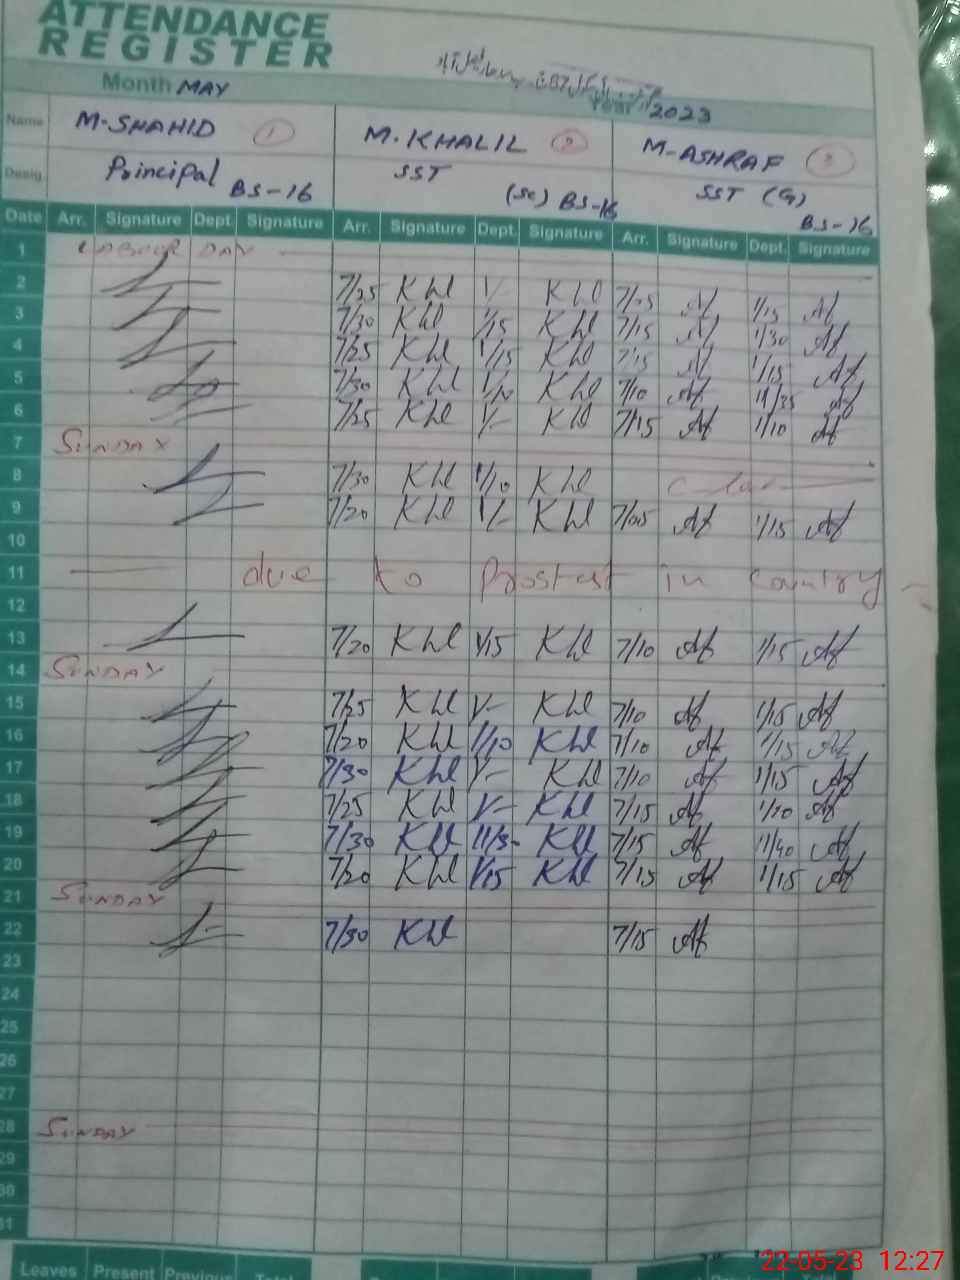 ATTENDANCE
REGISTER
Month MAY Year 2023
Name M-SHAHID 1 M.KHALIL 2 M-ASHRAF 3
Desig. Principal BS-16 SST (Sc) BS-16 SST (G) BS-16
Date Arr. Signature Dept. Signature Arr. Signature Dept. Signature Arr. Signature Dept. Signature
1 LABOUR DAY
2 7/25 Khl 1/- Khl 7/25 Af 1/15 Af
3 7/30 Khl 1/15 Khl 7/15 Af 1/30 Af
4 7/25 Khl 1/15 Khl 7/15 Af 1/15 Af
5 7/30 Khl Khl 7/10 Af 11/35 Af
6 7/25 Khl 1/- Khl 7/15 Af 1/10 Af
7 SUNDAY
8 7/30 Khl 1/10 Khl
9 7/20 Khl 1/- Khl Af 1/15 Af
10
11 due to Protest in country
12
13 7/20 Khl 1/15 Khl 7/10 Af 1/15 Af
14 SUNDAY
15 7/25 Khl 1/- Khl 7/10 Af 1/15 Af
16 7/20 Khl 1/10 Khl 7/10 Af 1/15 Af
17 7/30 Khl 1/- Khl 7/10 Af 1/15 Af
18 7/25 Khl 1/- Khl 7/15 Af Af
19 7/30 Khl 11/30 Khl 7/15 Af 11/40 Af
20 7/20 Khl 1/15 Khl 7/15 Af 1/15 Af
21 SUNDAY
22 7/30 Khl 7/15 Af
23
24
25
26
27
28 SUNDAY
29
30
31
Leaves Present Previous Total
22-05-23 12:27